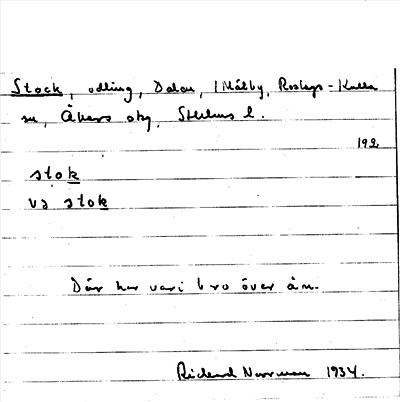 Stock, odling, Dalen, Målby, Roslags-Kulla
sn, Åkers skg, Sthlms l.
192
stok
va stok
Där har vari bro över ån.
Rickard Norrman 1934.